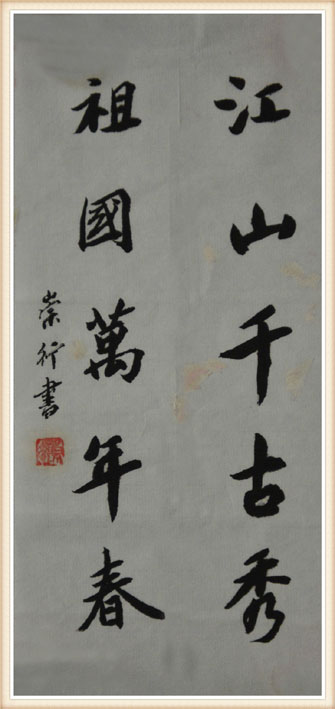 江山千古秀
祖國萬年春
崇行書